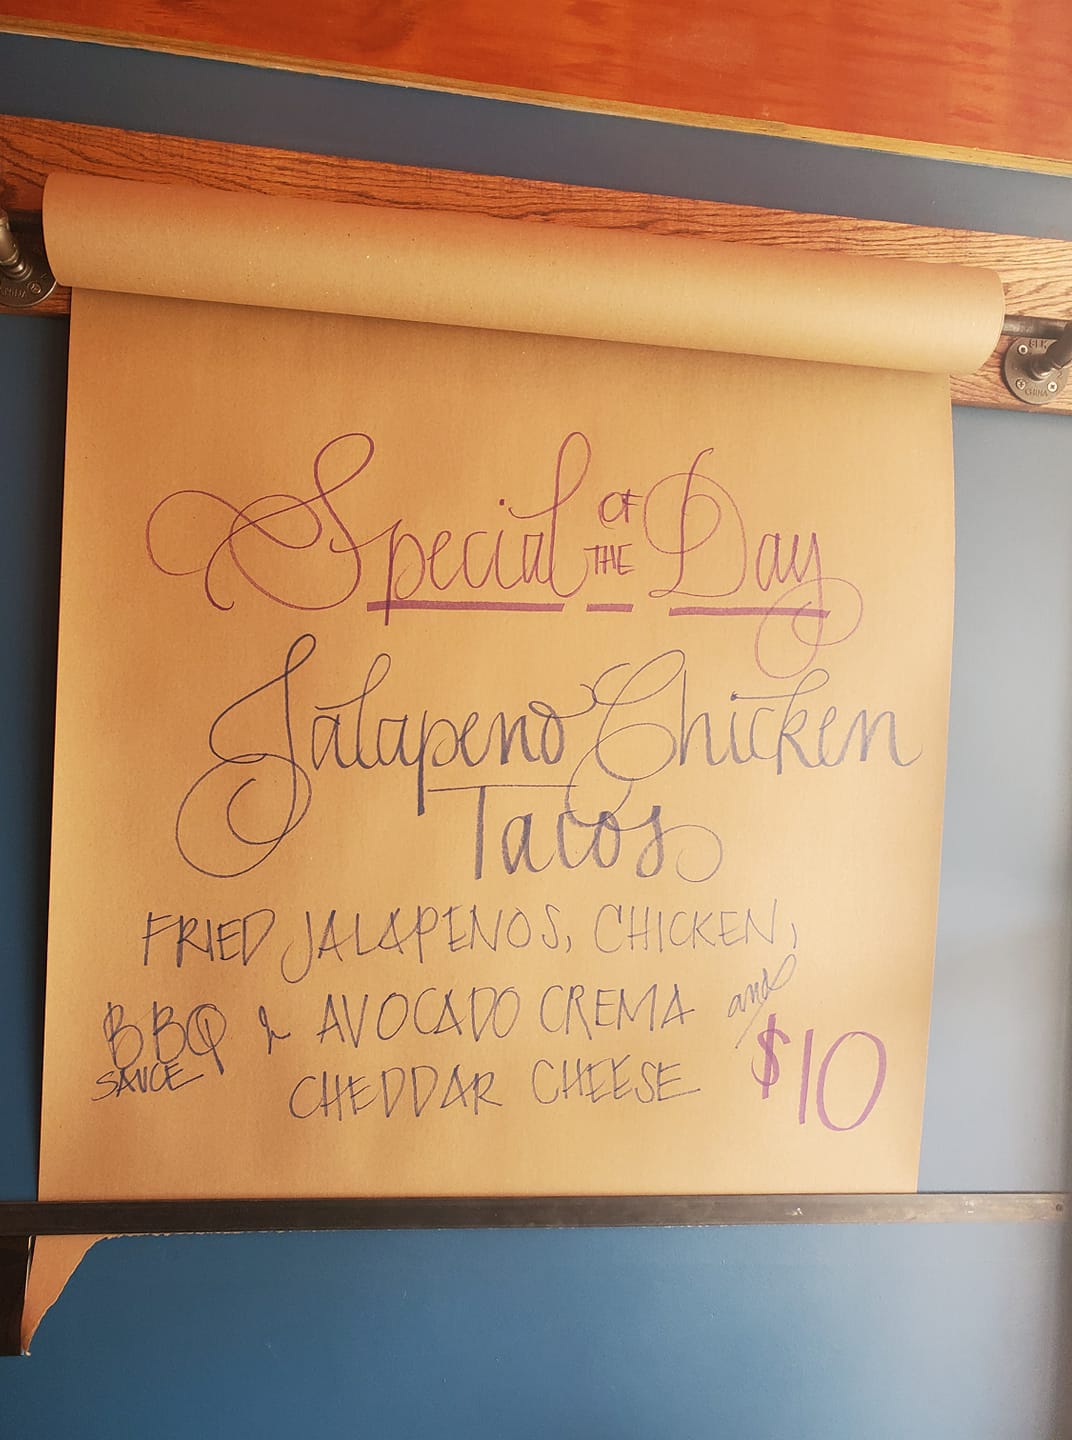 Special OF THE Day
Jalapeno Chicken
Tacos
FRIED JALAPENOS, CHICKEN,
BBQ SAUCE & AVOCADO CREMA and
CHEDDAR CHEESE
$10
BLK
CHINA
CHINA